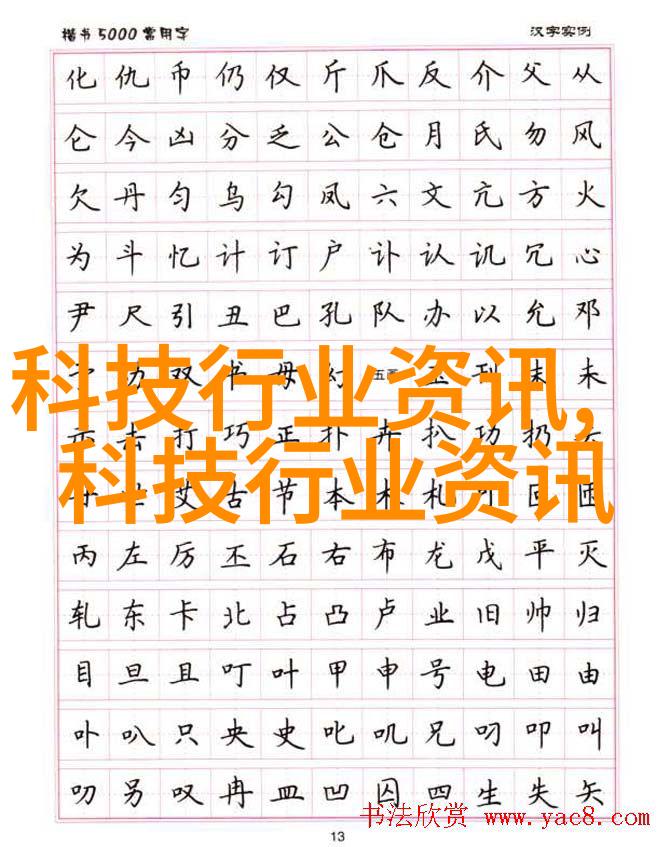 楷书5000常用字 汉字实例
化 仇 币 仍 仅 斤 爪 反 介 父 从
仑 今 凶 分 乏 公 仓 月 氏 勿 风
欠 丹 匀 乌 勾 凤 六 文 亢 方 火
为 斗 忆 计 订 户 讣 认 讥 冗 心
尹 尺 引 丑 巴 孔 队 办 以 允 邓
双 书 母 幻 五画 玉 刊 末 未
科技行业资讯,
去 打 巧 正 扑 卉 扒 功 扔
科技行业资讯
艾 古 节 本 术 札 叵 匝
丙 左 厉 丕 石 右 布 龙 戊 平 灭
轧 东 卡 北 占 凸 卢 业 旧 帅 归
目 旦 且 叮 叶 甲 申 号 电 田 由
卟 叭 只 央 史 叱 叽 兄 叼 叩 叫
叨 另 叹 冉 皿 凹 囚 四 生 失 矢
书法欣赏 www.yac8.com
13